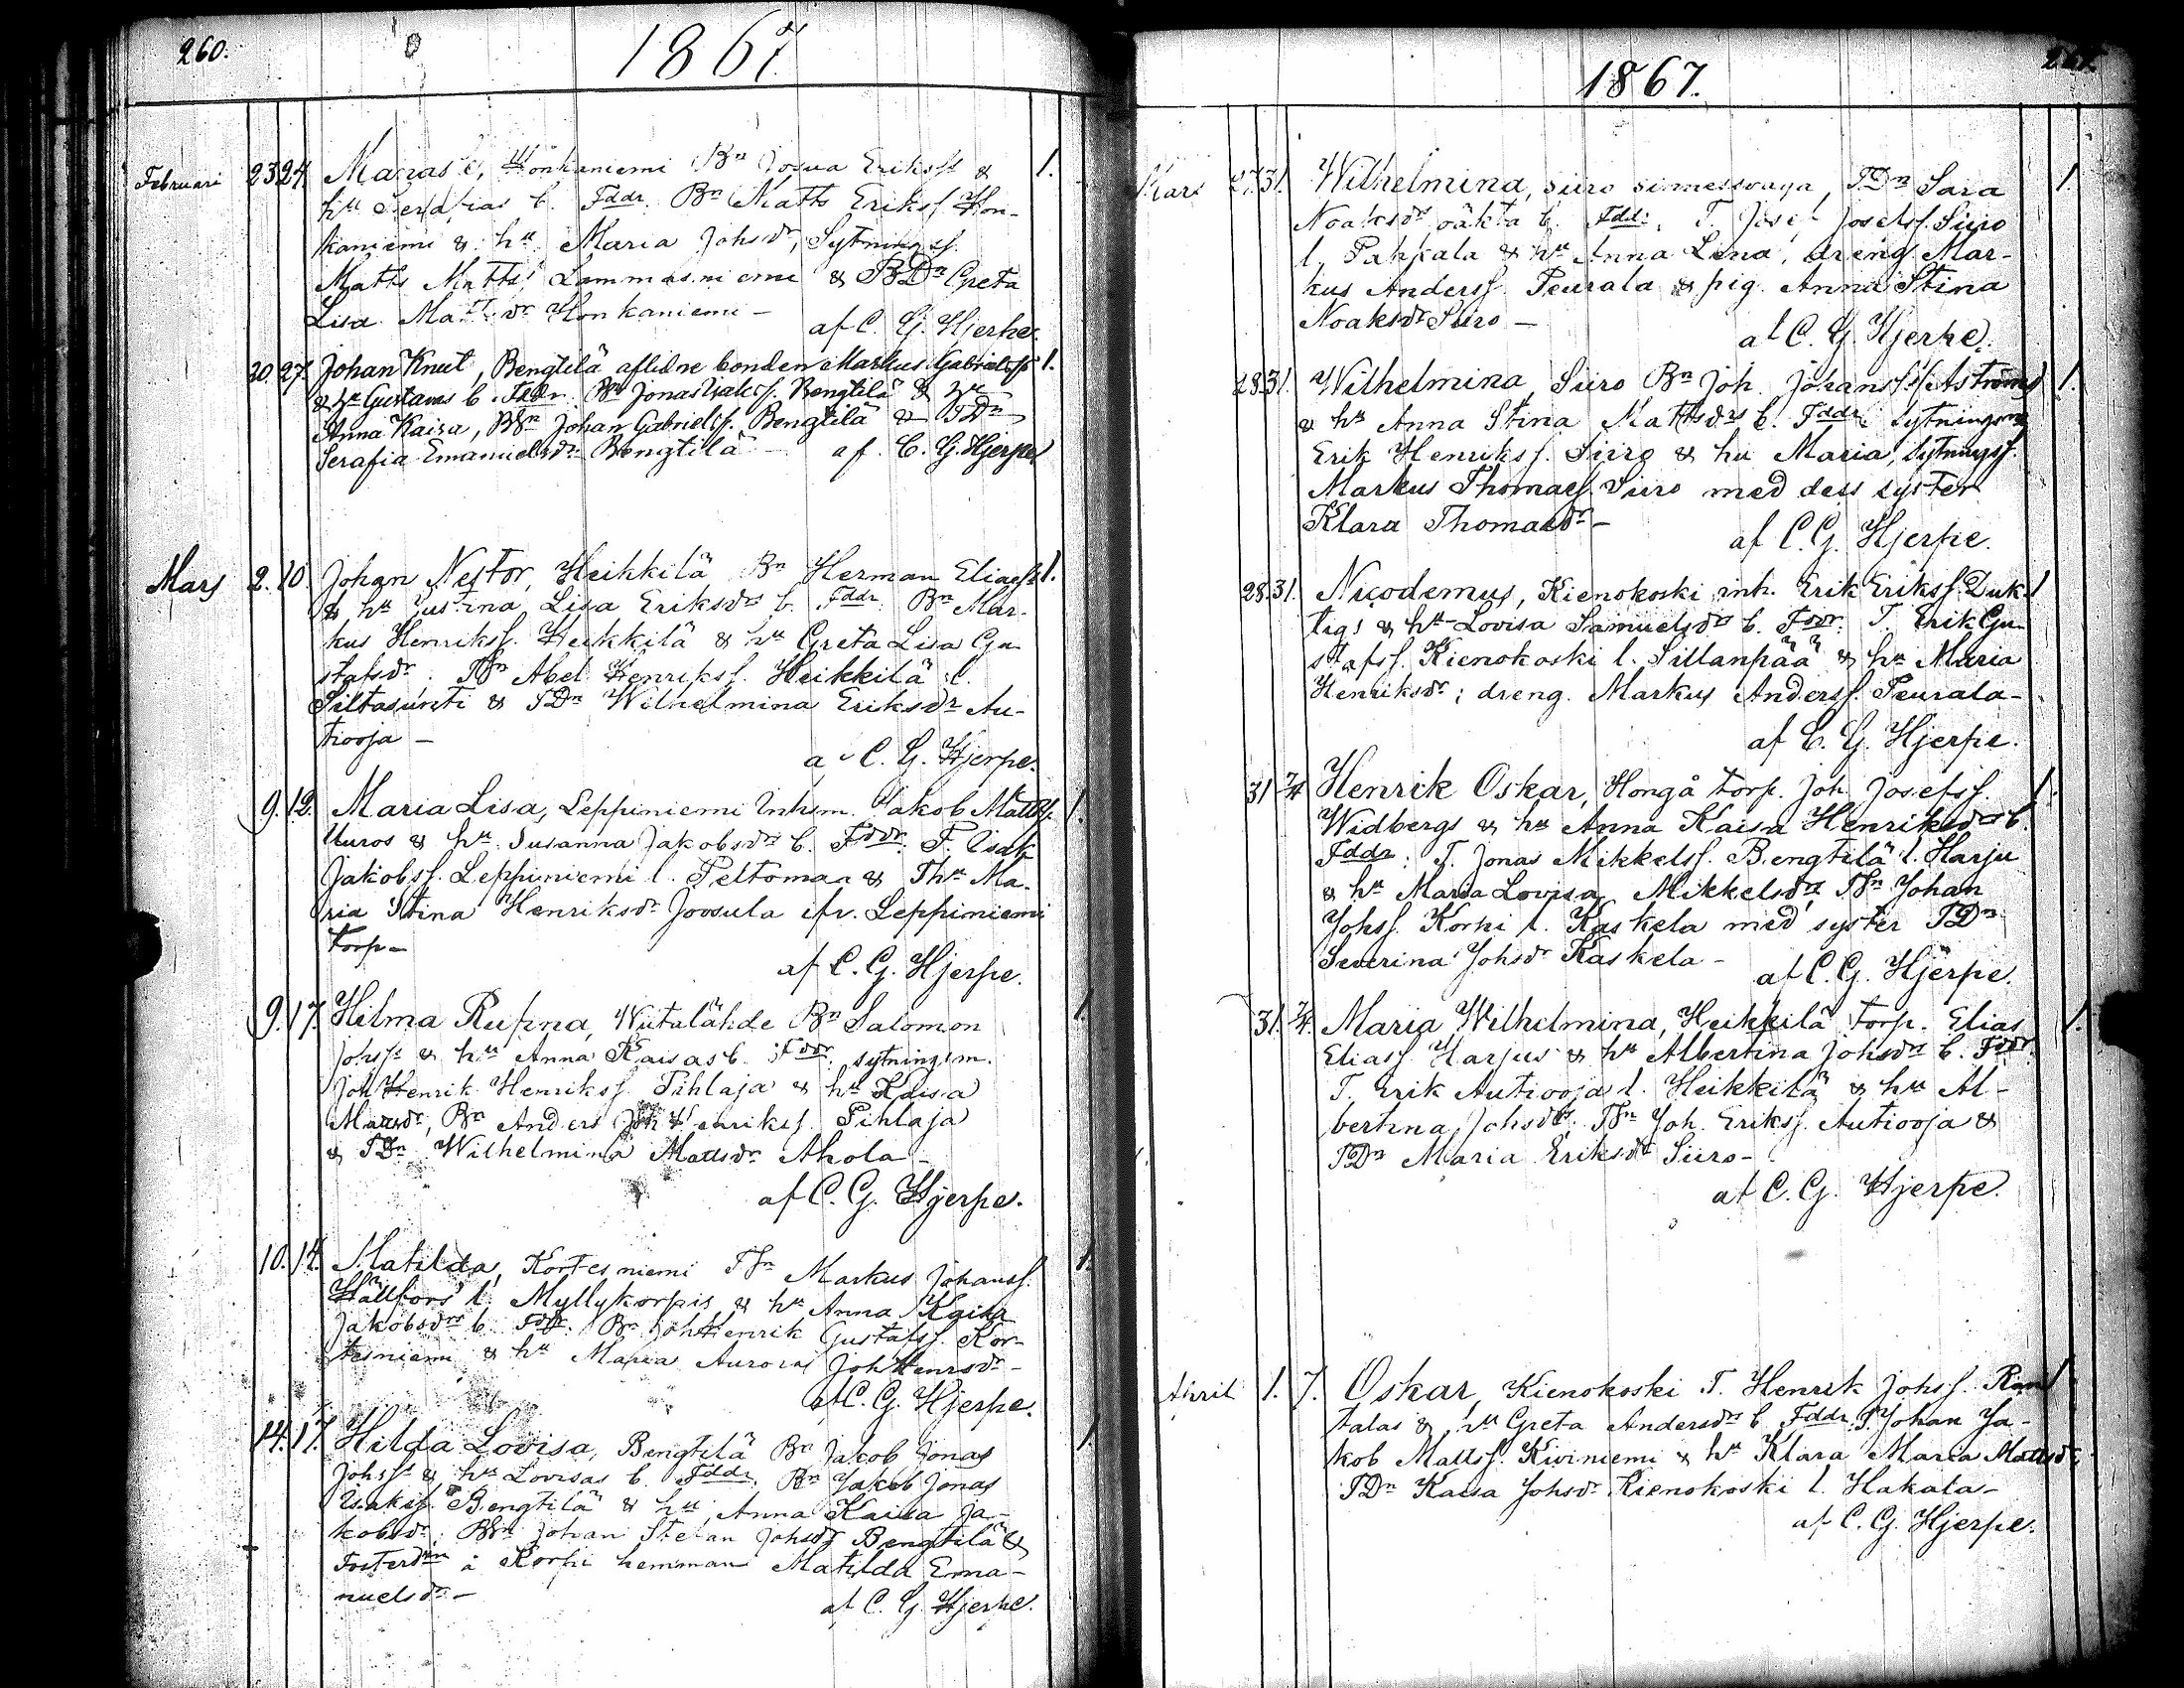 260.
1867.
Februari 23. 24. Honkaniemi Bn Josua Erikss. & 1.
hu Serafias b. Fddr. Bn Matts Erikss. Hon-
kaniemi & hu Maria Johsdr, Sytningss.
Matts Matts. Lammasniemi & BDn Greta
Lisa Mattsdr Honkaniemi –
af C. G. Hjerpe.
20. 27. Johan Knut, Bengtilä aflidne bonden Markus Gabrielss. 1.
& hu Gustavas b. Fddr. Bn Jonas Isakss. Bengtilä & hu
Anna Kaisa, BSn Johan Gabrielss. Bengtilä & TDn
Serafia Emanuelsdr Bengtilä – af C. G. Hjerpe
Mars 2. 10. Johan Nestor, Heikkilä Bn Herman Eliass. 1.
& hu Justina Lisa Eriksdrs b. Fddr. Bn Mar-
kus Henrikss. Heikkilä & hu Greta Lisa Gu-
stafsdr. TSn Abel Henrikss. Heikkilä l.
& TDn Wilhelmina Eriksdr Au-
tiooja –
af C. G. Hjerpe.
9. 12. Maria Lisa, Leppiniemi Inhsm. Jakob Mattss. 1.
Uuros & hu Susanna Jakobsdrs b. Fddr. T. Isak
Jakobss. Leppiniemi l. Peltomaa & Thu Ma-
ria Stina Henriksdr Joosula ifr. Leppiniemi
torp –
af C. G. Hjerpe.
9. 17. Hilma Rufina, Wiitalähde Bn Salomon 1.
Johss. & hu Anna Kaisas b. Fddr. sytningsm.
Joh Henrik Henrikss. Pihlaja & hu Kaisa
Mattsdr, Bn Anders Joh Henrikss. Pihlaja
& TDn Wilhelmina Mattsdr Ahola –
af C. G. Hjerpe.
10. 14. Matilda, Kortesniemi TSn Markus Johanss. 1.
Hällfors l. Myllykorpis & hu Anna Kaisa
Jakobsdrs b. Fddr. Bn Joh Henrik Gustafss. Kor-
tesniemi & hu Maria Aurora Joh Henrsdr –
af C. G. Hjerpe.
14. 17. Hilda Lovisa, Bengtilä Bn Jakob Jonas 1
Johss. & hu Lovisas b. Fddr. Bn Jakob Jonas
Isakss. Bengtilä & hu Anna Kaisa Ja-
kobsdr. BSn Johan Stefan Johss. Bengtilä &
å Korpi hemman Matilda Ema-
nuelsdr –
af C. G. Hjerpe.
1867.
Mars 27. 31. Wilhelmina, Siiro TDn Sara 1.
Noaksdrs oäkta b. Fddr. T. Josef Josefss. Siiro
l. Pahkala & hu Anna Lena, dreng Mar-
kus Anderss. Peurala & pig. Anna Stina
Noaksdr Siiro –
af C. G. Hjerpe.
28. 31. Wilhelmina Siiro Bn Joh. Johanss. Åströms 1.
& hu Anna Stina Mattsdrs b. Fddr. Sytningsm
Erik Henrikss. Siiro & hu Maria, Sytningss.
Markus Thomass. Siiro med dess syster
Klara Thomasdr –
af C. G. Hjerpe.
28. 31. Nicodemus, Kienokoski inh. Erik Erikss. Duk- 1
tigs & hu Lovisa Samuelsdrs b. Fddr. T. Erik Gu-
stafss. Kienokoski l. Sillanpää & hu Maria
Henriksdr; dreng. Markus Anderss. Peurala –
af C. G. Hjerpe.
31. 7/4 Henrik Oskar, Hongå torp. Joh. Josefss. 1.
Widbergs & hu Anna Kaisa Henriksdrs b.
Fddr: T. Jonas Mikkelss. Bengtilä l. Harju
& hu Maria Lovisa Mikkelsdr, TSn Johan
Johss. Korpi l. Kaskela med syster TDn
Severina Johsdr Kaskela –
af C. G. Hjerpe.
31. 7/4. Maria Wilhelmina, Heikkilä torp. Elias 1.
Eliass. Harjus & hu Albertina Johsdrs b. Fddr.
T. Erik Autiooja l. Heikkilä & hu Al-
bertina Johsdr; TSn Joh. Erikss. Autiooja &
TDn Maria Eriksdr Siiro –
af C. G. Hjerpe.
April 1. 7. Oskar, Kienokoski T. Henrik Johss. Ran- 1
talas & hu Greta Andersdrs b. Fddr. T. Johan Ja-
kob Mattss. Kiviniemi & hu Klara Maria Mattsdr
TDn Kaisa Johsdr Kienokoski l. Hakala –
af C. G. Hjerpe.